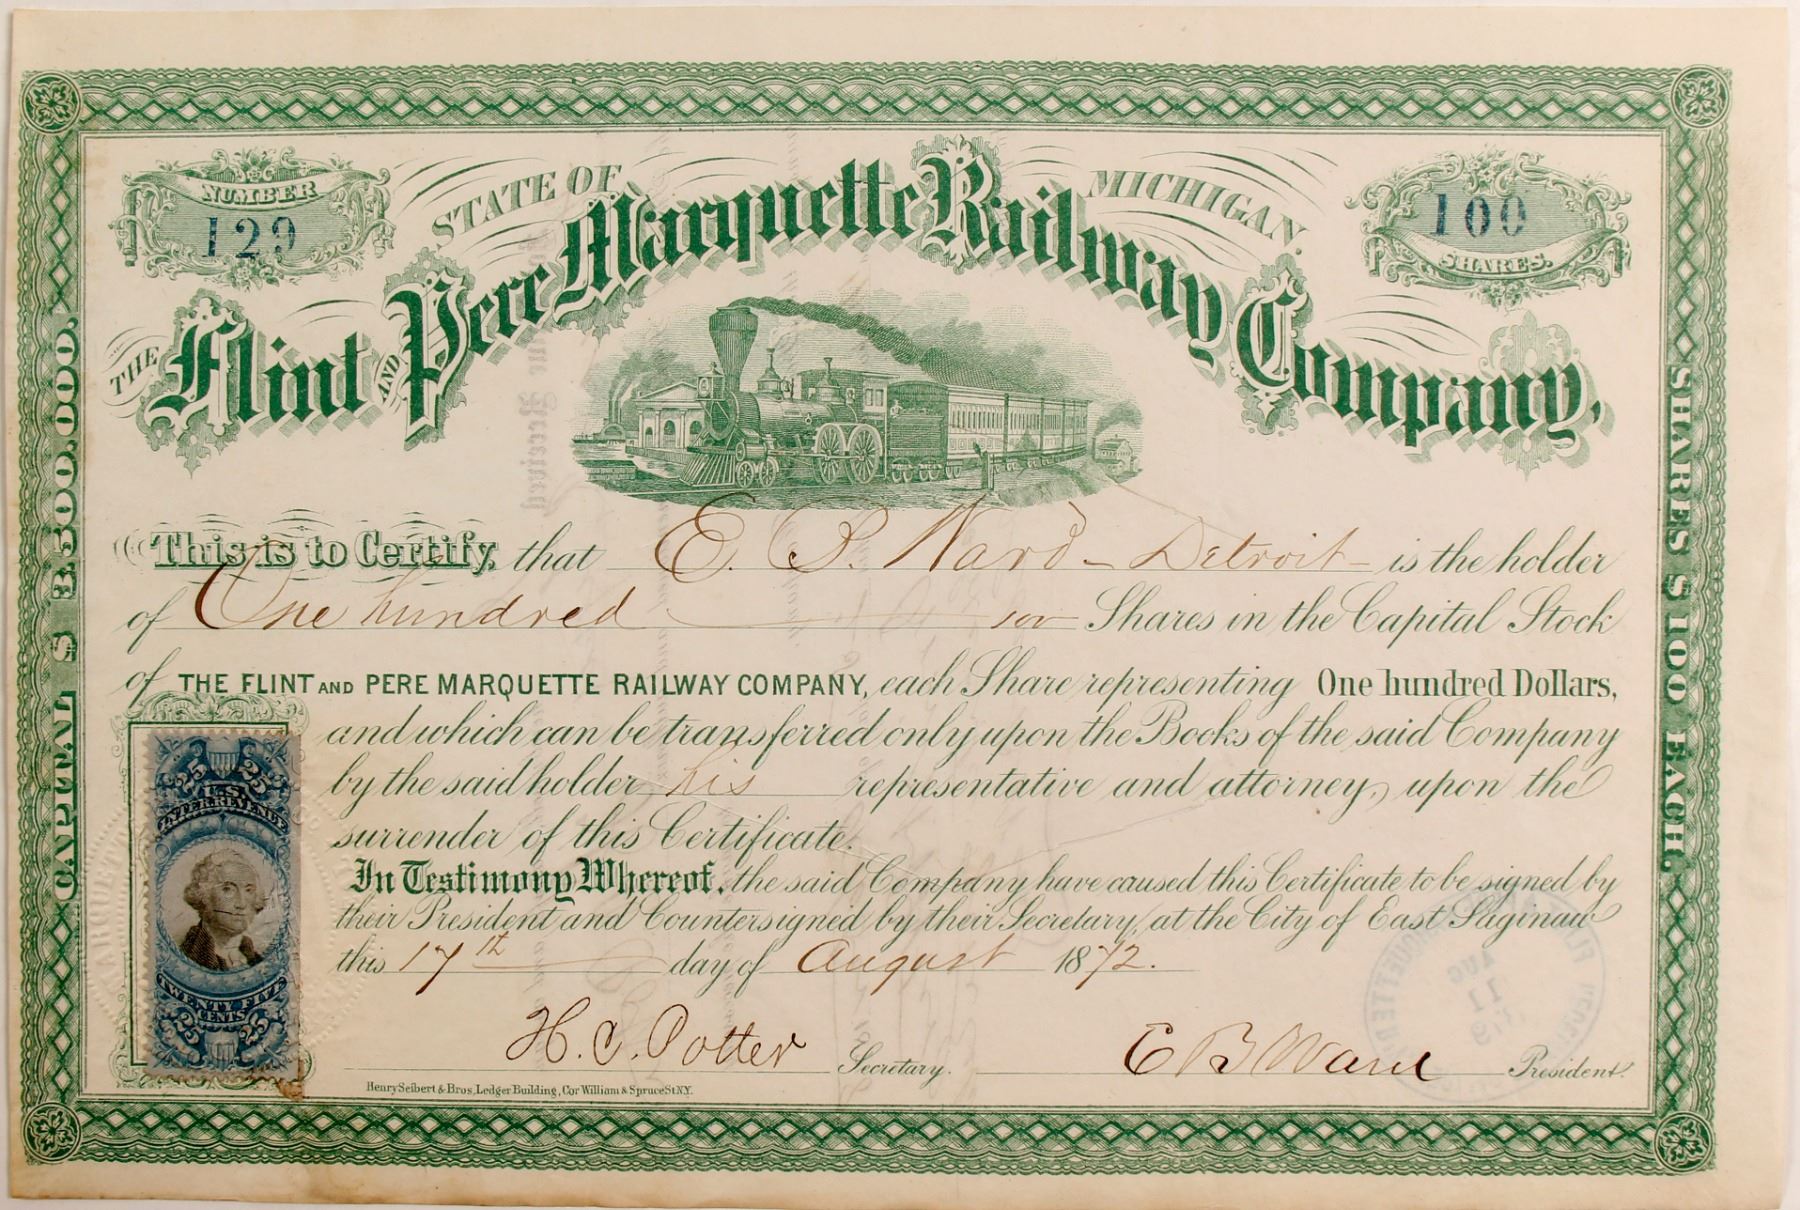 NUMBER
129
STATE OF MICHIGAN.
100
SHARES.
THE Flint AND Pere Marquette Railway Company,
CAPITAL $ 3.500.000.
SHARES $ 100 EACH.
This is to Certify, that E. B. Ward - Detroit - is the holder
of One hundred 100 Shares in the Capital Stock
of THE FLINT AND PERE MARQUETTE RAILWAY COMPANY, each Share representing One hundred Dollars,
and which can be transferred only upon the Books of the said Company
by the said holder his representative and attorney, upon the
surrender of this Certificate.
In Testimony Whereof, the said Company have caused this Certificate to be signed by
their President and Countersigned by their Secretary, at the City of East Saginaw
this 17th day of August 1872.
H. C. Potter Secretary.
E B Ward President.
Henry Seibert & Bros, Ledger Building, Cor William & Spruce St N.Y.
25 25
U.S.
INTER. REVENUE
TWENTY FIVE
CENTS
25 25